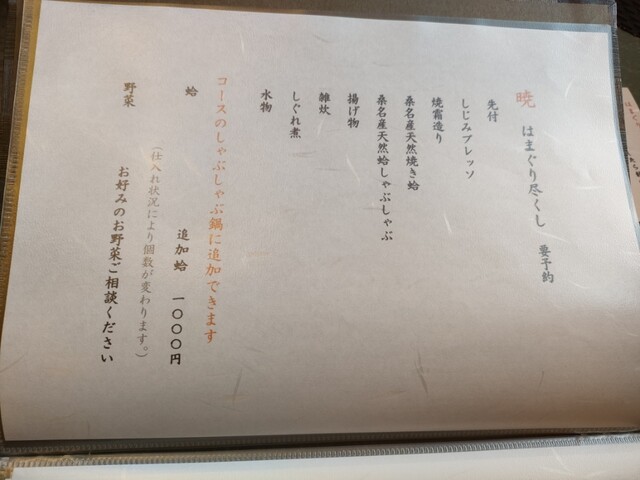 暁 はまぐり尽くし 要予約
先付
しじみプレッソ
焼霜造り
桑名産天然焼き蛤
桑名産天然蛤しゃぶしゃぶ
揚げ物
雑炊
しぐれ煮
水物
コースのしゃぶしゃぶ鍋に追加できます
蛤 追加蛤 一〇〇〇円
(仕入れ状況により個数が変わります。)
野菜 お好みのお野菜ご相談ください